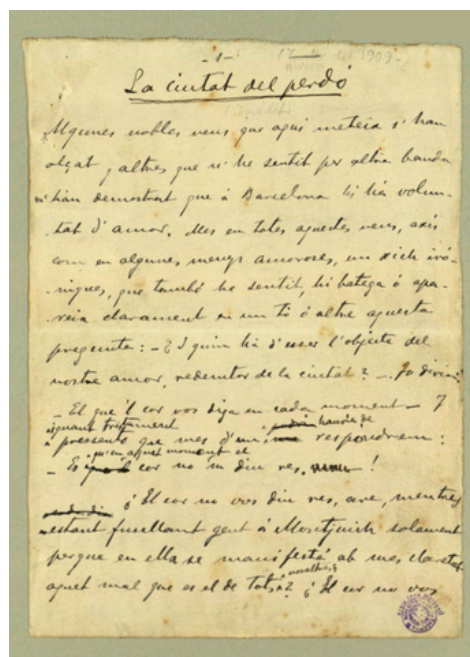 -1-
1909-
La ciutat del perdó
Algunes nobles veus que aquí meteix s'han
alçat y altres que n'he sentit per altra banda
m'han demostrat que á Barcelona hi ha volun-
tat d'amor. Mes en totes aquestes veus, axis
com en algunes menys amoroses, un xich iró-
niques, que també he sentit, hi batega ó apa-
reix clarament en un tó ó altre aquesta
pregunta: -¿I quin ha d'esser l'objecte del
nostre amor, redemtor de la ciutat? - Jo diria:
- El que'l cor vos diga en cada moment - I
tristament hauria de
á pressentir que mes d'un respondrem:
qu'en aquest moment el
- Es cor no'm diu res !
¿El cor no vos diu res, are, mentres
estant fusellant gent á Montjuich solament
perque en ella se manifestá ab mes claretat
nosaltres
aquet mal que es el de tots? ¿El cor no vos